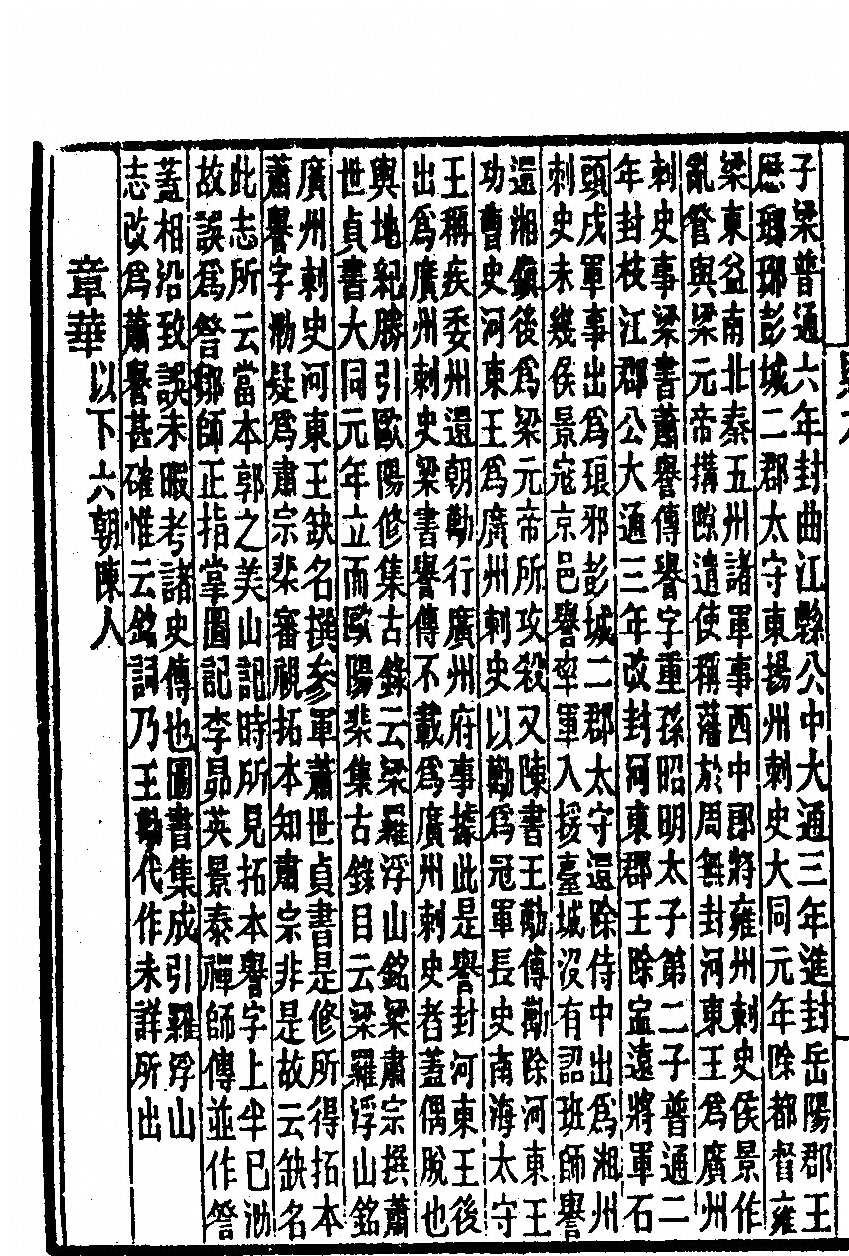 子梁普通六年封曲江縣公中大通三年進封岳陽郡王
歷瑯琊彭城二郡太守東揚州刺史大同元年除都督雍
梁東益南北秦五州諸軍事西中郎將雍州刺史侯景作
亂詧與梁元帝搆隙遣使稱藩於周無封河東王爲廣州
刺史事梁書蕭譽傳譽字重孫昭明太子第二子普通二
年封枝江郡公大通三年改封河東郡王除寧遠將軍石
頭戍軍事出爲琅邪彭城二郡太守還除侍中出爲湘州
刺史未幾侯景寇京邑譽率軍入援臺城沒有詔班師譽
還湘鎮後爲梁元帝所攻殺又陳書王勱傳勱除河東王
功曹史河東王爲廣州刺史以勱爲冠軍長史南海太守
王稱疾委州還朝勱行廣州府事據此是譽封河東王後
出爲廣州刺史梁書譽傳不載爲廣州刺史者蓋偶脫也
輿地紀勝引歐陽修集古錄云梁羅浮山銘梁肅宗撰蕭
世貞書大同元年立而歐陽棐集古錄目云梁羅浮山銘
廣州刺史河東王缺名撰參軍蕭世貞書是修所得拓本
蕭譽字泐疑爲肅宗棐審視拓本知肅宗非是故云缺名
此志所云當本郭之美山記時所見拓本譽字上半已泐
故誤爲詧鄒師正指掌圖記李昴英景泰禪師傳並作詧
蓋相沿致誤未暇考諸史傳也圖書集成引羅浮山
志改爲蕭譽甚確惟云銘詞乃王勱代作未詳所出
章華 以下六朝陳人